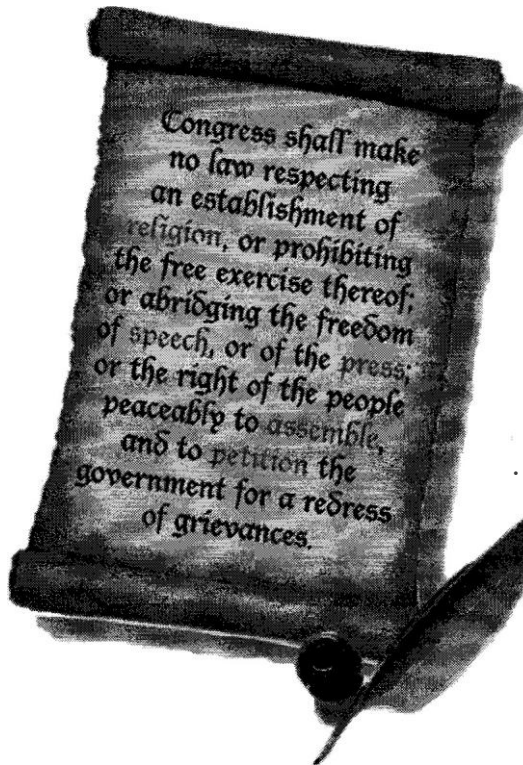 Congress shall make
no law respecting
an establishment of
religion, or prohibiting
the free exercise thereof;
or abridging the freedom
of speech, or of the press;
or the right of the people
peaceably to assemble,
and to petition the
government for a redress
of grievances.